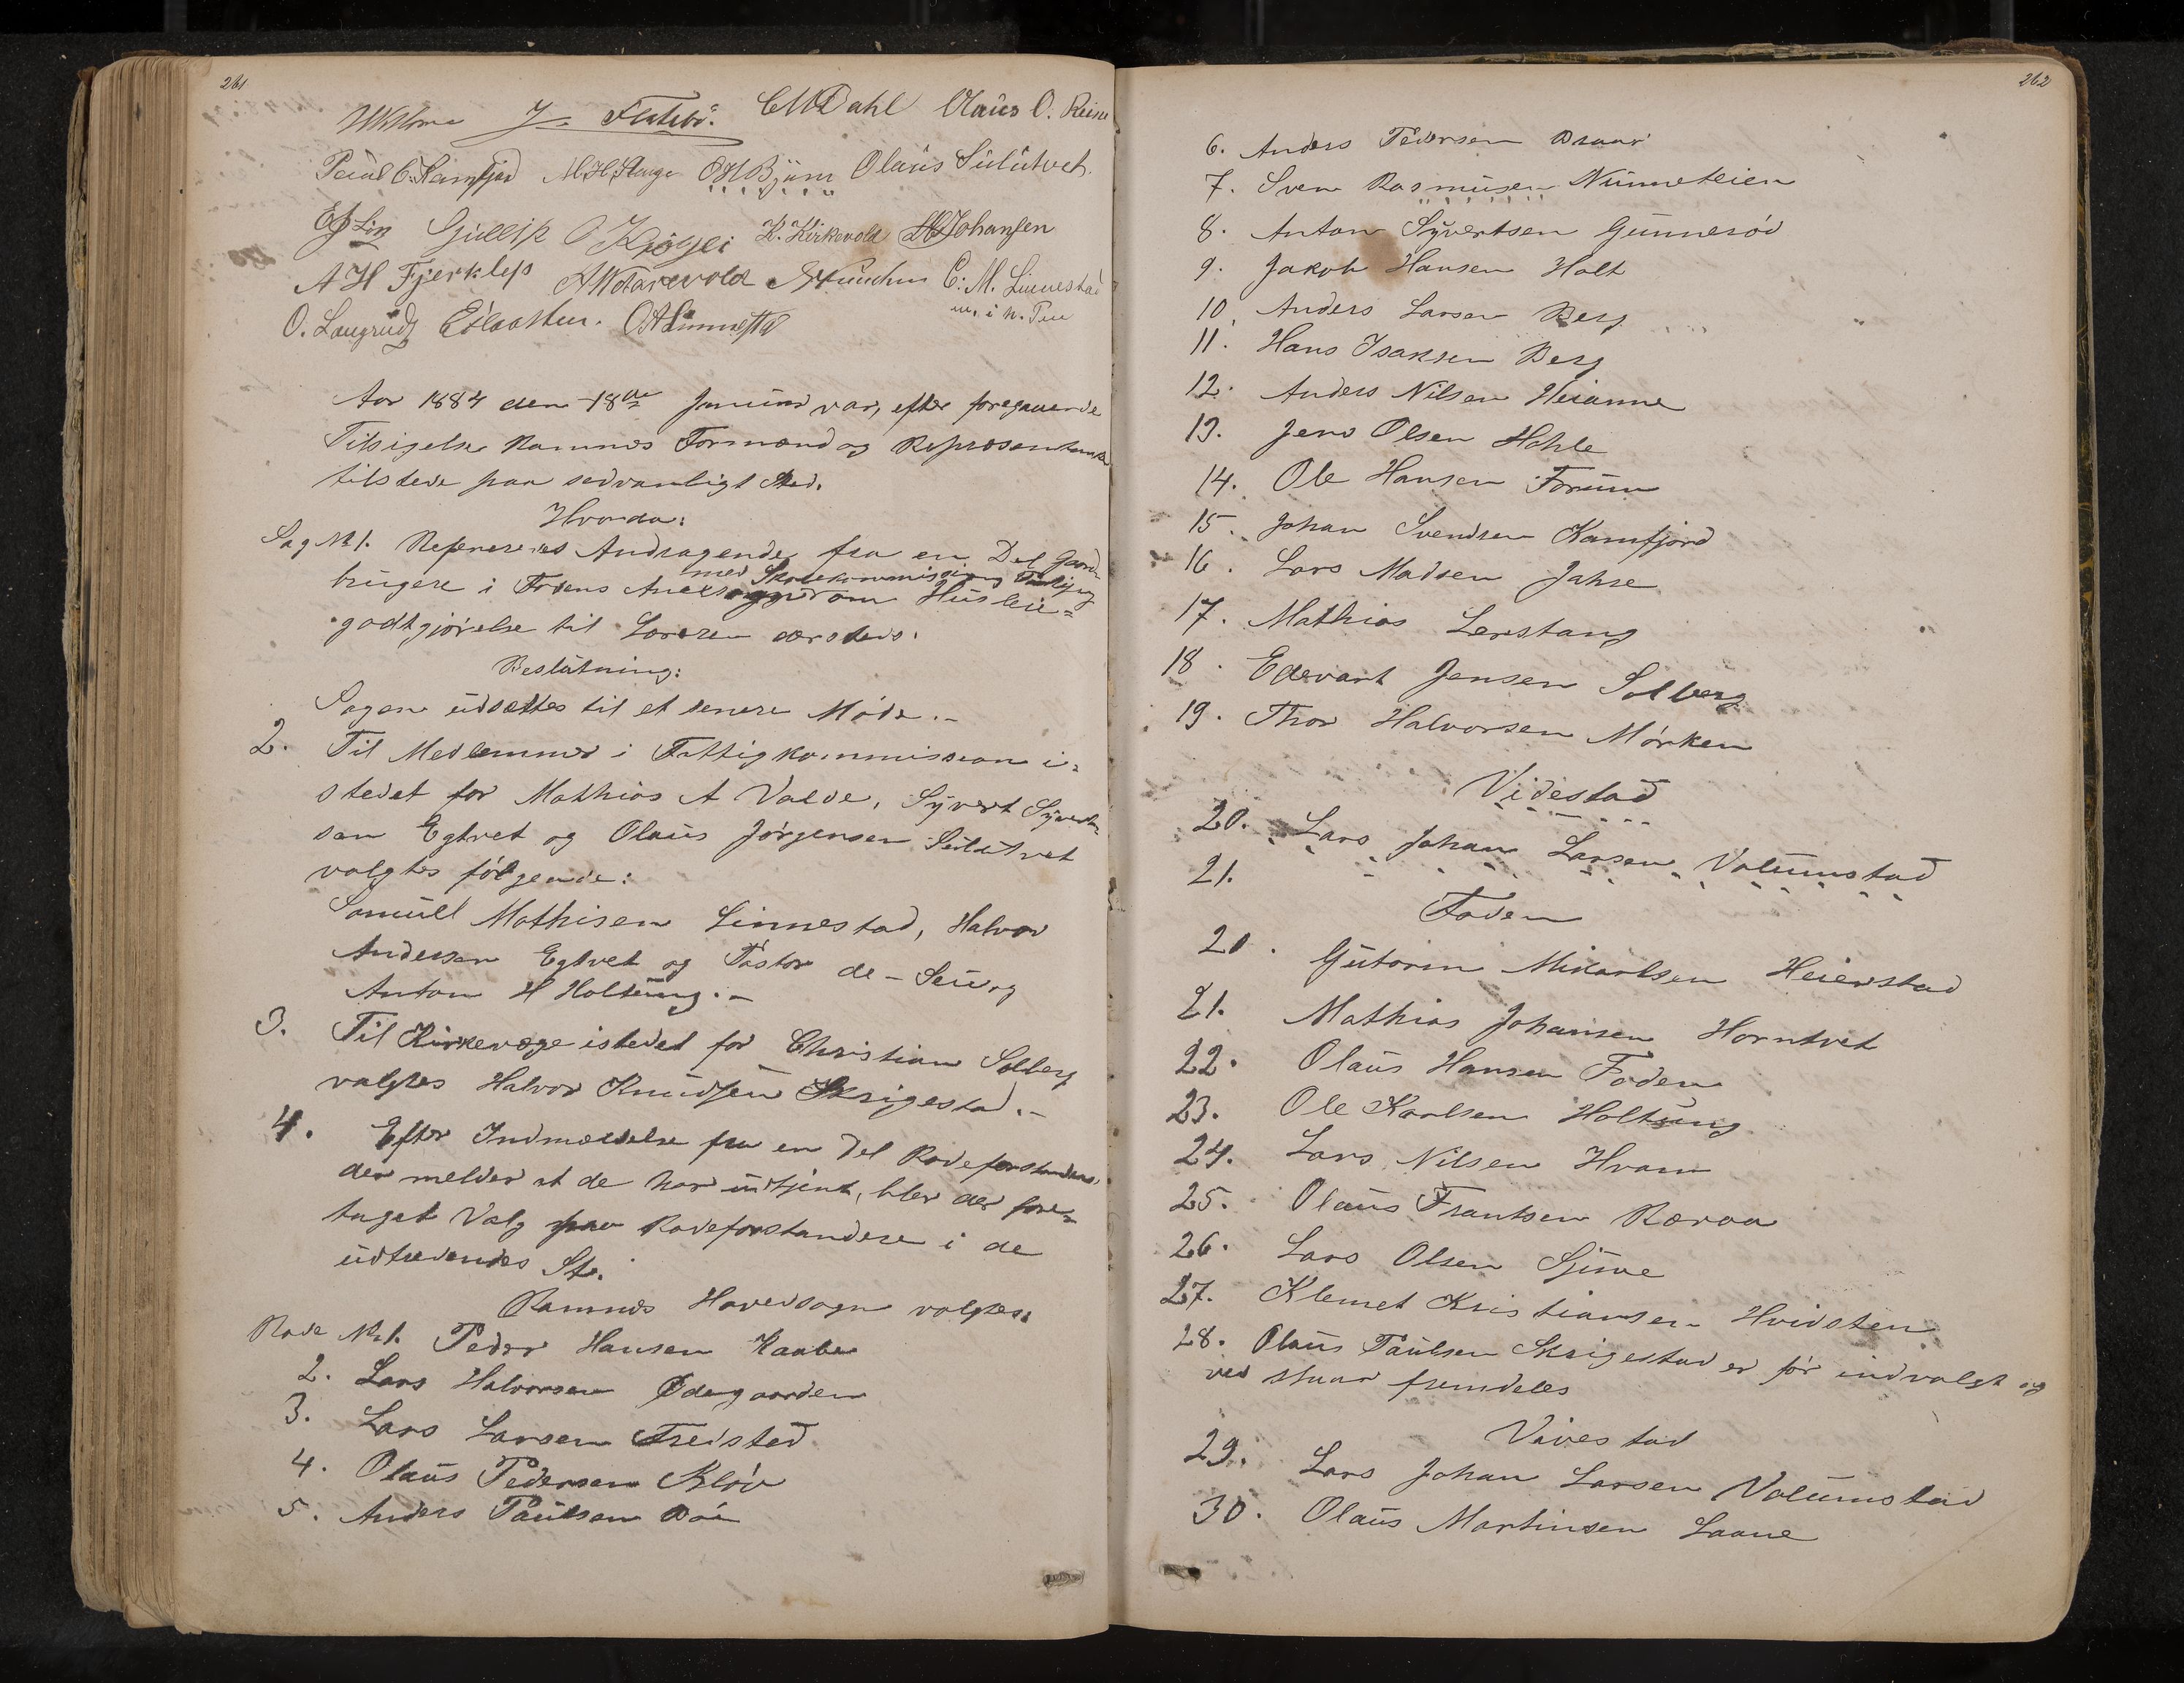 261
J. Flatebö. C M Dahl Olaus O. Reine
Paul C. Kamfjord M. H. Hauge O H Bjüm Olaüs Sülütvet
Gullik O Kjøgei K. Kirkevold Johansen
A H Fjerkleps C. M. Linnestad
O. Langrud
Aar 1884 den 18de Januar var, efter foregaaende
Tilsigelse Ramnes Formænd og Repræsentanter
tilstede paa sedvanligt Sted.
Hvorda:
Sag No 1. Refereredes Andragende fra en Del Gaard-
med Skolekommissions
brugere i Fodens Annex om Husleie-
godtgjørelse til Læreren dersteds.
Beslütning:
Sagen üdsættes til et senere Møde.-
2. Til Medlemmer i Fattigkommission i-
stedet for Mathias A Valde, Syvert Syvert-
sen Egtvet og Olaüs Jørgensen Sülütvet
valgtes følgende:
Samüel Mathisen Linnestad, Halvor
Andersen Egtvet og Pastor de Seue og
Anton H Holtüng.-
3. Til Kirkeværge istedet for Christian Solberg
valgtes Halvor Knudsen Skrigestad.-
4. Efter Indmældelse fra en Del Rodeforstandere,
der melder at de har üdtjent, blev der fore-
taget Valg paa Rodeforstandere i de
üdtrædendes St.
Ramnes Hovedsogn valgtes:
Rode No 1. Peder Hansen Kaabe
2. Lars Halvorsen Ødegaarden
3. Lars Larsen Freisted
4. Olaüs Pedersen Kløv
5. Anders Paulsen Bøe
262
6. Anders Pedersen Braar
7. Sven Rasmüsen Nünneteien
8. Anton Syvertsen Günnerød
9. Jakob Hansen Holt
10. Anders Larsen Berg
11. Hans Isaksen Berg
12. Anders Nilsen Heianne
13. Jens Olsen Hohle
14. Ole Hansen Forüm
15. Johan Svendsen Kamfjord
16. Lars Madsen Jahre
17. Mathias Lerstang
18. Edevart Jensen Solberg
19. Thor Halvorsen Mørken
Videstad
20. Lars Johan Larsen Valümstad
21.
Foden
20. Gütorm Mikaelsen Heierstad
21. Mathias Johansen Horntvet
22. Olaüs Hansen Foden
23. Ole Karlsen Holtüng
24. Lars Nilsen Hvam
25. Olaüs Frantsen Røraa
26. Lars Olsen Gjüve
27. Klemet Kristiansen Hvidsten
28. Olaüs Paülsen Skrigestad er før indvalgt og
ved staar fremdeles
Vivestad
29. Lars Johan Larsen Valümstad
30. Olaüs Martinsen Laane